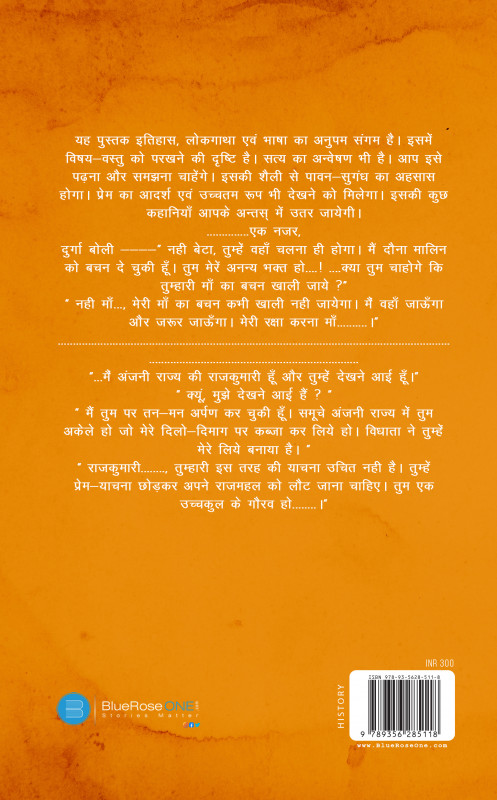 यह पुस्तक इतिहास, लोकगाथा एवं भाषा का अनुपम संगम है। इसमें
विषय–वस्तु को परखने की दृष्टि है। सत्य का अन्वेषण भी है। आप इसे
पढ़ना और समझना चाहेंगे। इसकी शैली से पावन–सुगंध का अहसास
होगा। प्रेम का आदर्श एवं उच्चतम रूप भी देखने को मिलेगा। इसकी कुछ
कहानियाँ आपके अन्तस् में उतर जायेगी।
..............एक नजर,
दुर्गा बोली ––––" नही बेटा, तुम्हें वहाँ चलना ही होगा। मैं दौना मालिन
को बचन दे चुकी हूँ। तुम मेरें अनन्य भक्त हो....! ....क्या तुम चाहोगे कि
तुम्हारी माँ का बचन खाली जाये ?"
" नही माँ..., मेरी माँ का बचन कभी खाली नही जायेगा। मैं वहाँ जाऊँगा
और जरूर जाऊँगा। मेरी रक्षा करना माँ..........।"
"...मैं अंजनी राज्य की राजकुमारी हूँ और तुम्हें देखने आई हूँ।"
" क्यूं, मुझे देखने आई हैं ? "
" मैं तुम पर तन–मन अर्पण कर चुकी हूँ। समूचे अंजनी राज्य में तुम
अकेले हो जो मेरे दिलो–दिमाग पर कब्जा कर लिये हो। विधाता ने तुम्हें
मेरे लिये बनाया है। "
" राजकुमारी........, तुम्हारी इस तरह की याचना उचित नही है। तुम्हें
प्रेम–याचना छोड़कर अपने राजमहल को लौट जाना चाहिए। तुम एक
उच्चकुल के गौरव हो........।"
INR 300
HISTORY
ISBN 978-93-5628-511-8
9 789356 285118
www.BlueRoseOne.com
BlueRoseONE
Stories Matter